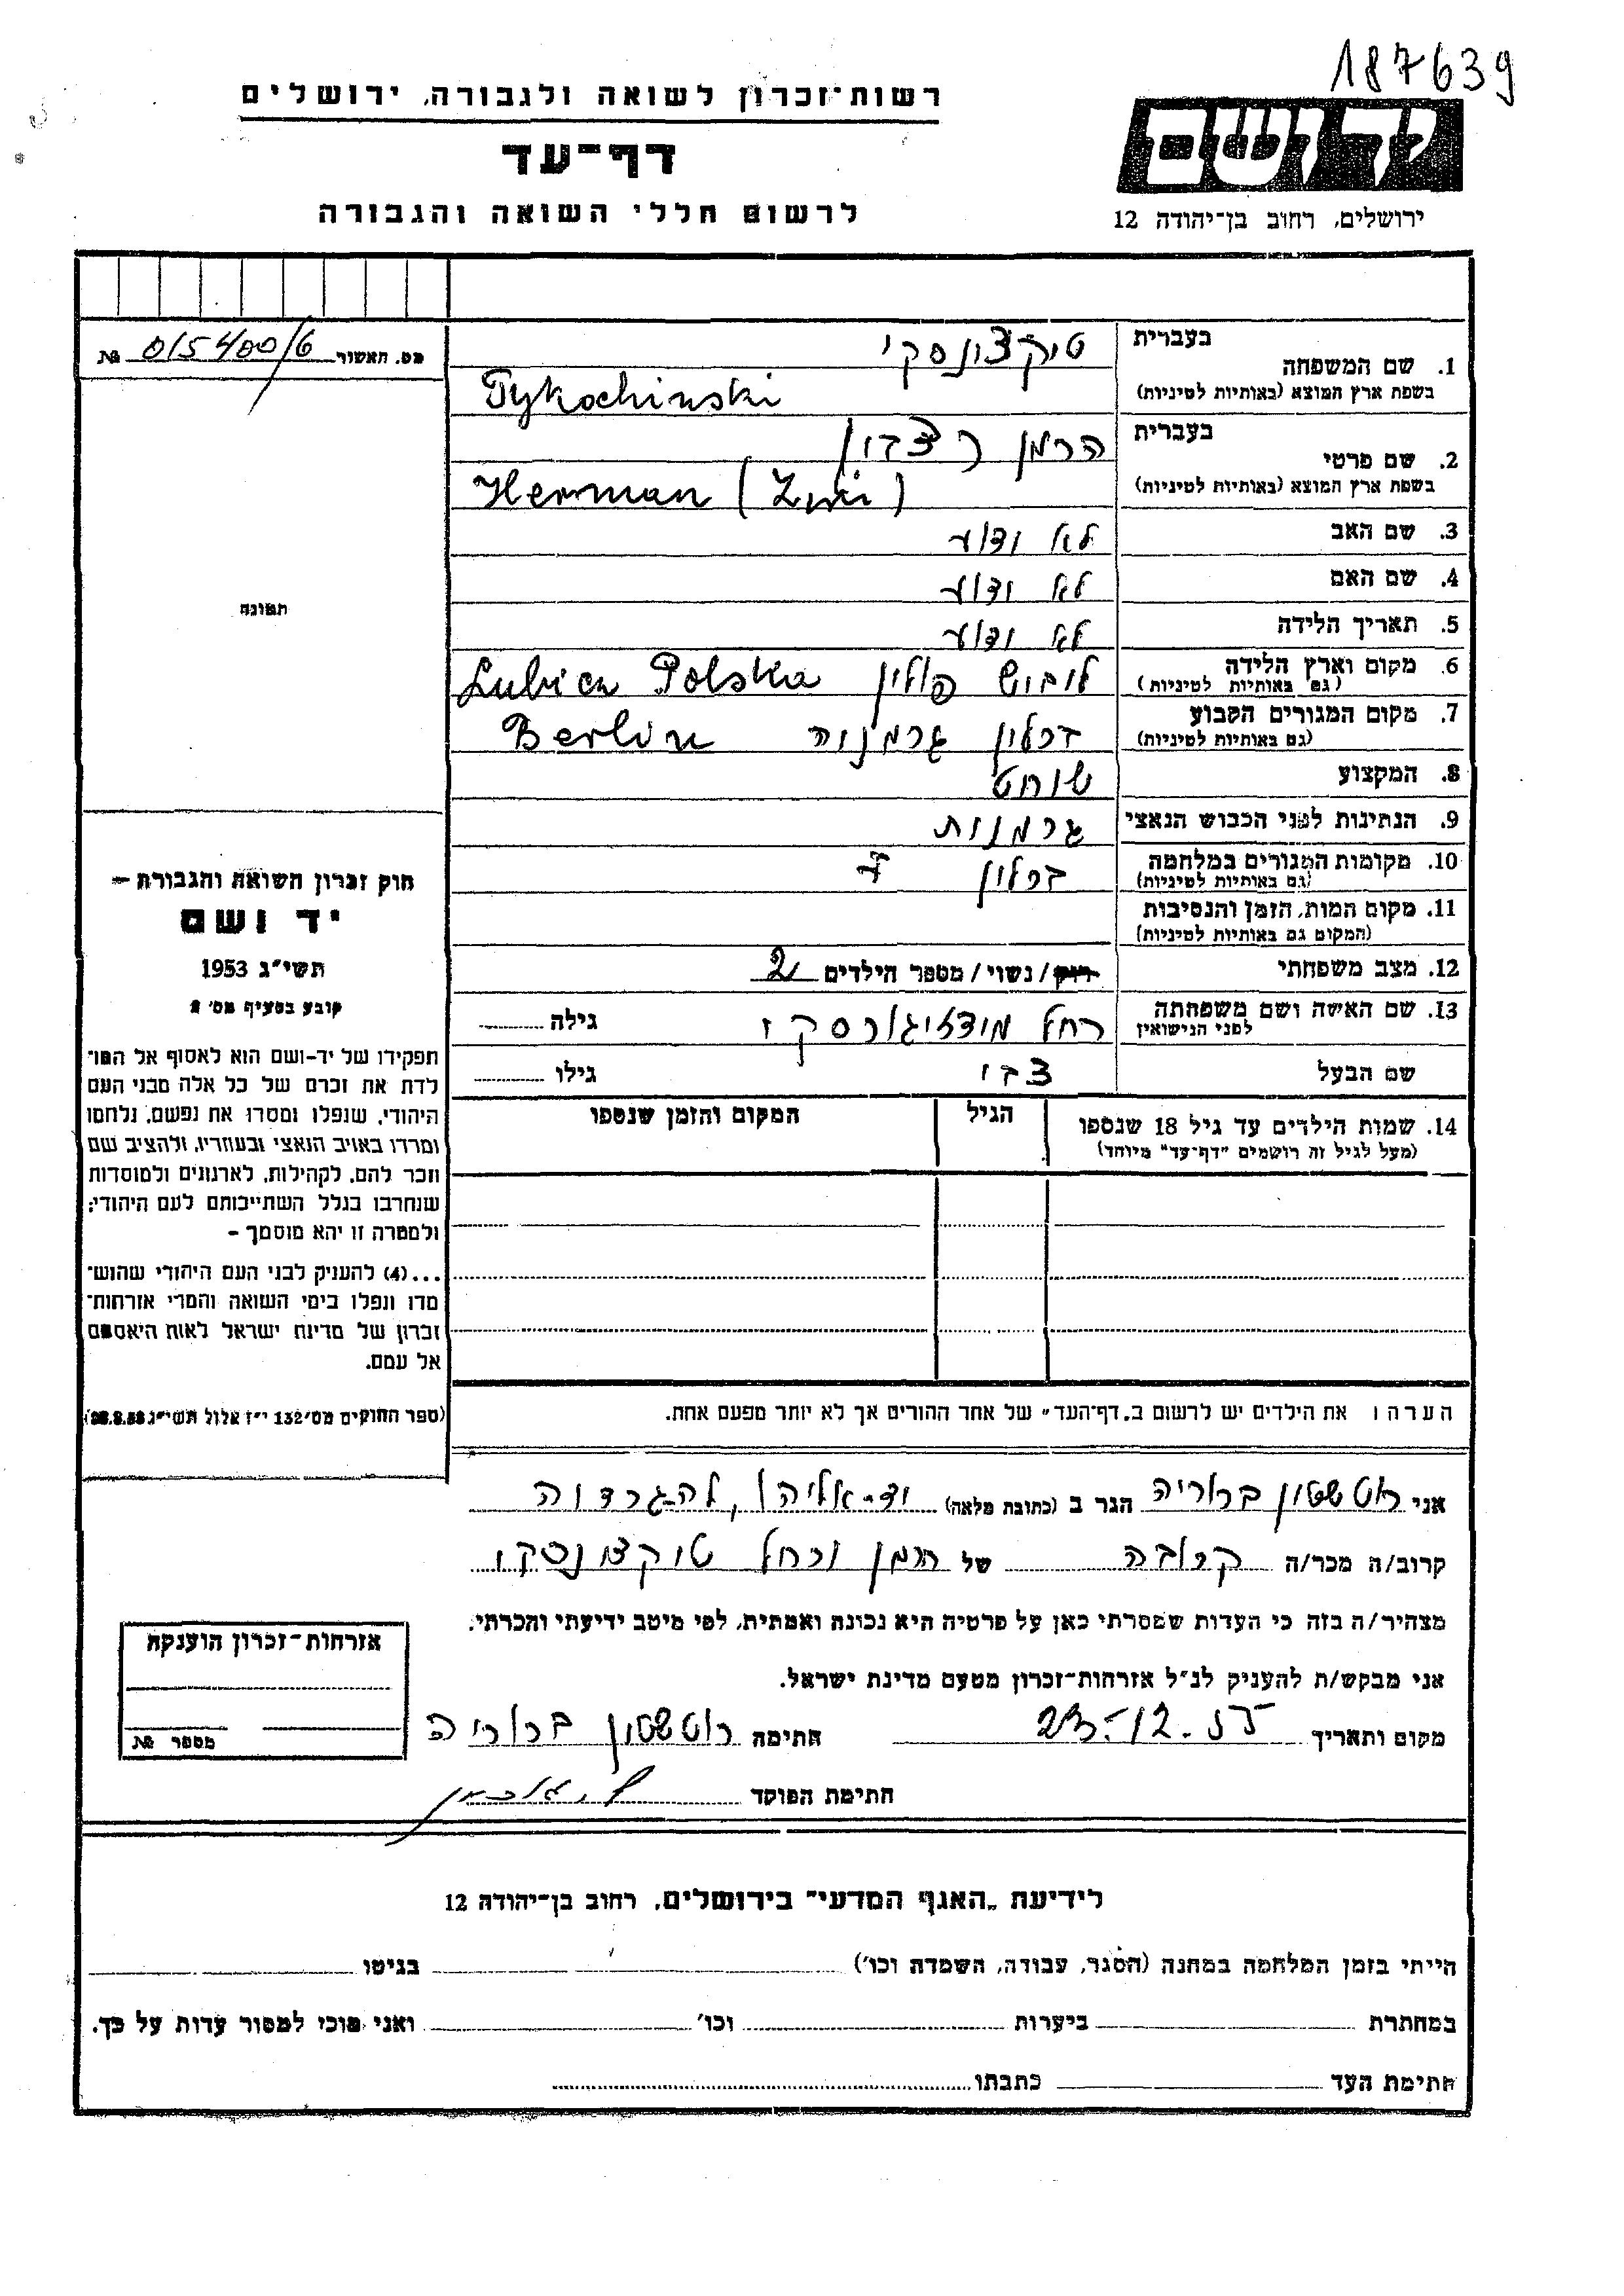 187639
רשות־זכרון לשואה ולגבורה, ירושלים
דף־עד
לרשום חללי השואה והגבורה
ידושם
ירושלים, רחוב בן־יהודה 12
מס. האשור 015400/6 №
1. שם המשפחה
בעברית טיקצונסקי
בשפת ארץ המוצא (באותיות לטיניות) Tykochinski
2. שם פרטי
בעברית הרמן
בשפת ארץ המוצא (באותיות לטיניות) Herman (Zwi)
3. שם האב לא ידוע
4. שם האם לא ידוע
5. תאריך הלידה לא ידוע
6. מקום וארץ הלידה (גם באותיות לטיניות) פולין Lubicz Polska
7. מקום המגורים הקבוע (גם באותיות לטיניות) ברלין גרמניה Berlin
8. המקצוע שוחט
9. הנתינות לפני הכבוש הנאצי גרמנית
10. מקומות המגורים במלחמה (גם באותיות לטיניות) ברלין
11. מקום המות, הזמן והנסיבות (המקום גם באותיות לטיניות)
12. מצב משפחתי רוק/ נשוי/ מספר הילדים 2
13. שם האשה ושם משפחתה לפני הנישואין רחל גילה
שם הבעל צבי גילו
14. שמות הילדים עד גיל 18 שנספו (מעל לגיל זה רושמים "דף־עד" מיוחד) הגיל המקום והזמן שנספו
תמונה
חוק זכרון השואה והגבורה —
יד ושם
תשי"ג 1953
קובע בסעיף מס׳ 2
תפקידו של יד־ושם הוא לאסוף אל המו־
לדת את זכרם של כל אלה מבני העם
היהודי, שנפלו ומסרו את נפשם, נלחמו
ומרדו באויב הנאצי ובעוזריו, ולהציב שם
וזכר להם, לקהילות, לארגונים ולמוסדות
שנחרבו בגלל השתייכותם לעם היהודי;
ולמטרה זו יהא מוסמך —
...(4) להעניק לבני העם היהודי שהוש־
מדו ונפלו בימי השואה והמרי אזרחות־
זכרון של מדינת ישראל לאות היאספם
אל עמם.
(ספר החוקים מס׳ 132 י"ז אלול תשי"ג 28.8.53)
הערה: את הילדים יש לרשום ב„דף־העד" של אחד ההורים אך לא יותר מפעם אחת.
אני הגר ב (כתובת מלאה) יד-אליהו,
קרוב/ה מכר/ה קרובה של הרמן ורחל טיקצונסקי
מצהיר/ה בזה כי העדות שמסרתי כאן על פרטיה היא נכונה ואמתית, לפי מיטב ידיעתי והכרתי.
אני מבקש/ת להעניק לנ"ל אזרחות־זכרון מטעם מדינת ישראל.
מקום ותאריך 23-12-55 חתימה
חתימת הפוקד
אזרחות־זכרון הוענקה
מספר №
לידיעת „האגף המדעי" בירושלים, רחוב בן־יהודה 12
הייתי בזמן המלחמה במחנה (הסגר, עבודה, השמדה וכו׳) בגיטו
במחתרת ביערות וכו׳ ואני מוכן למסור עדות על כך.
חתימת העד כתבתו